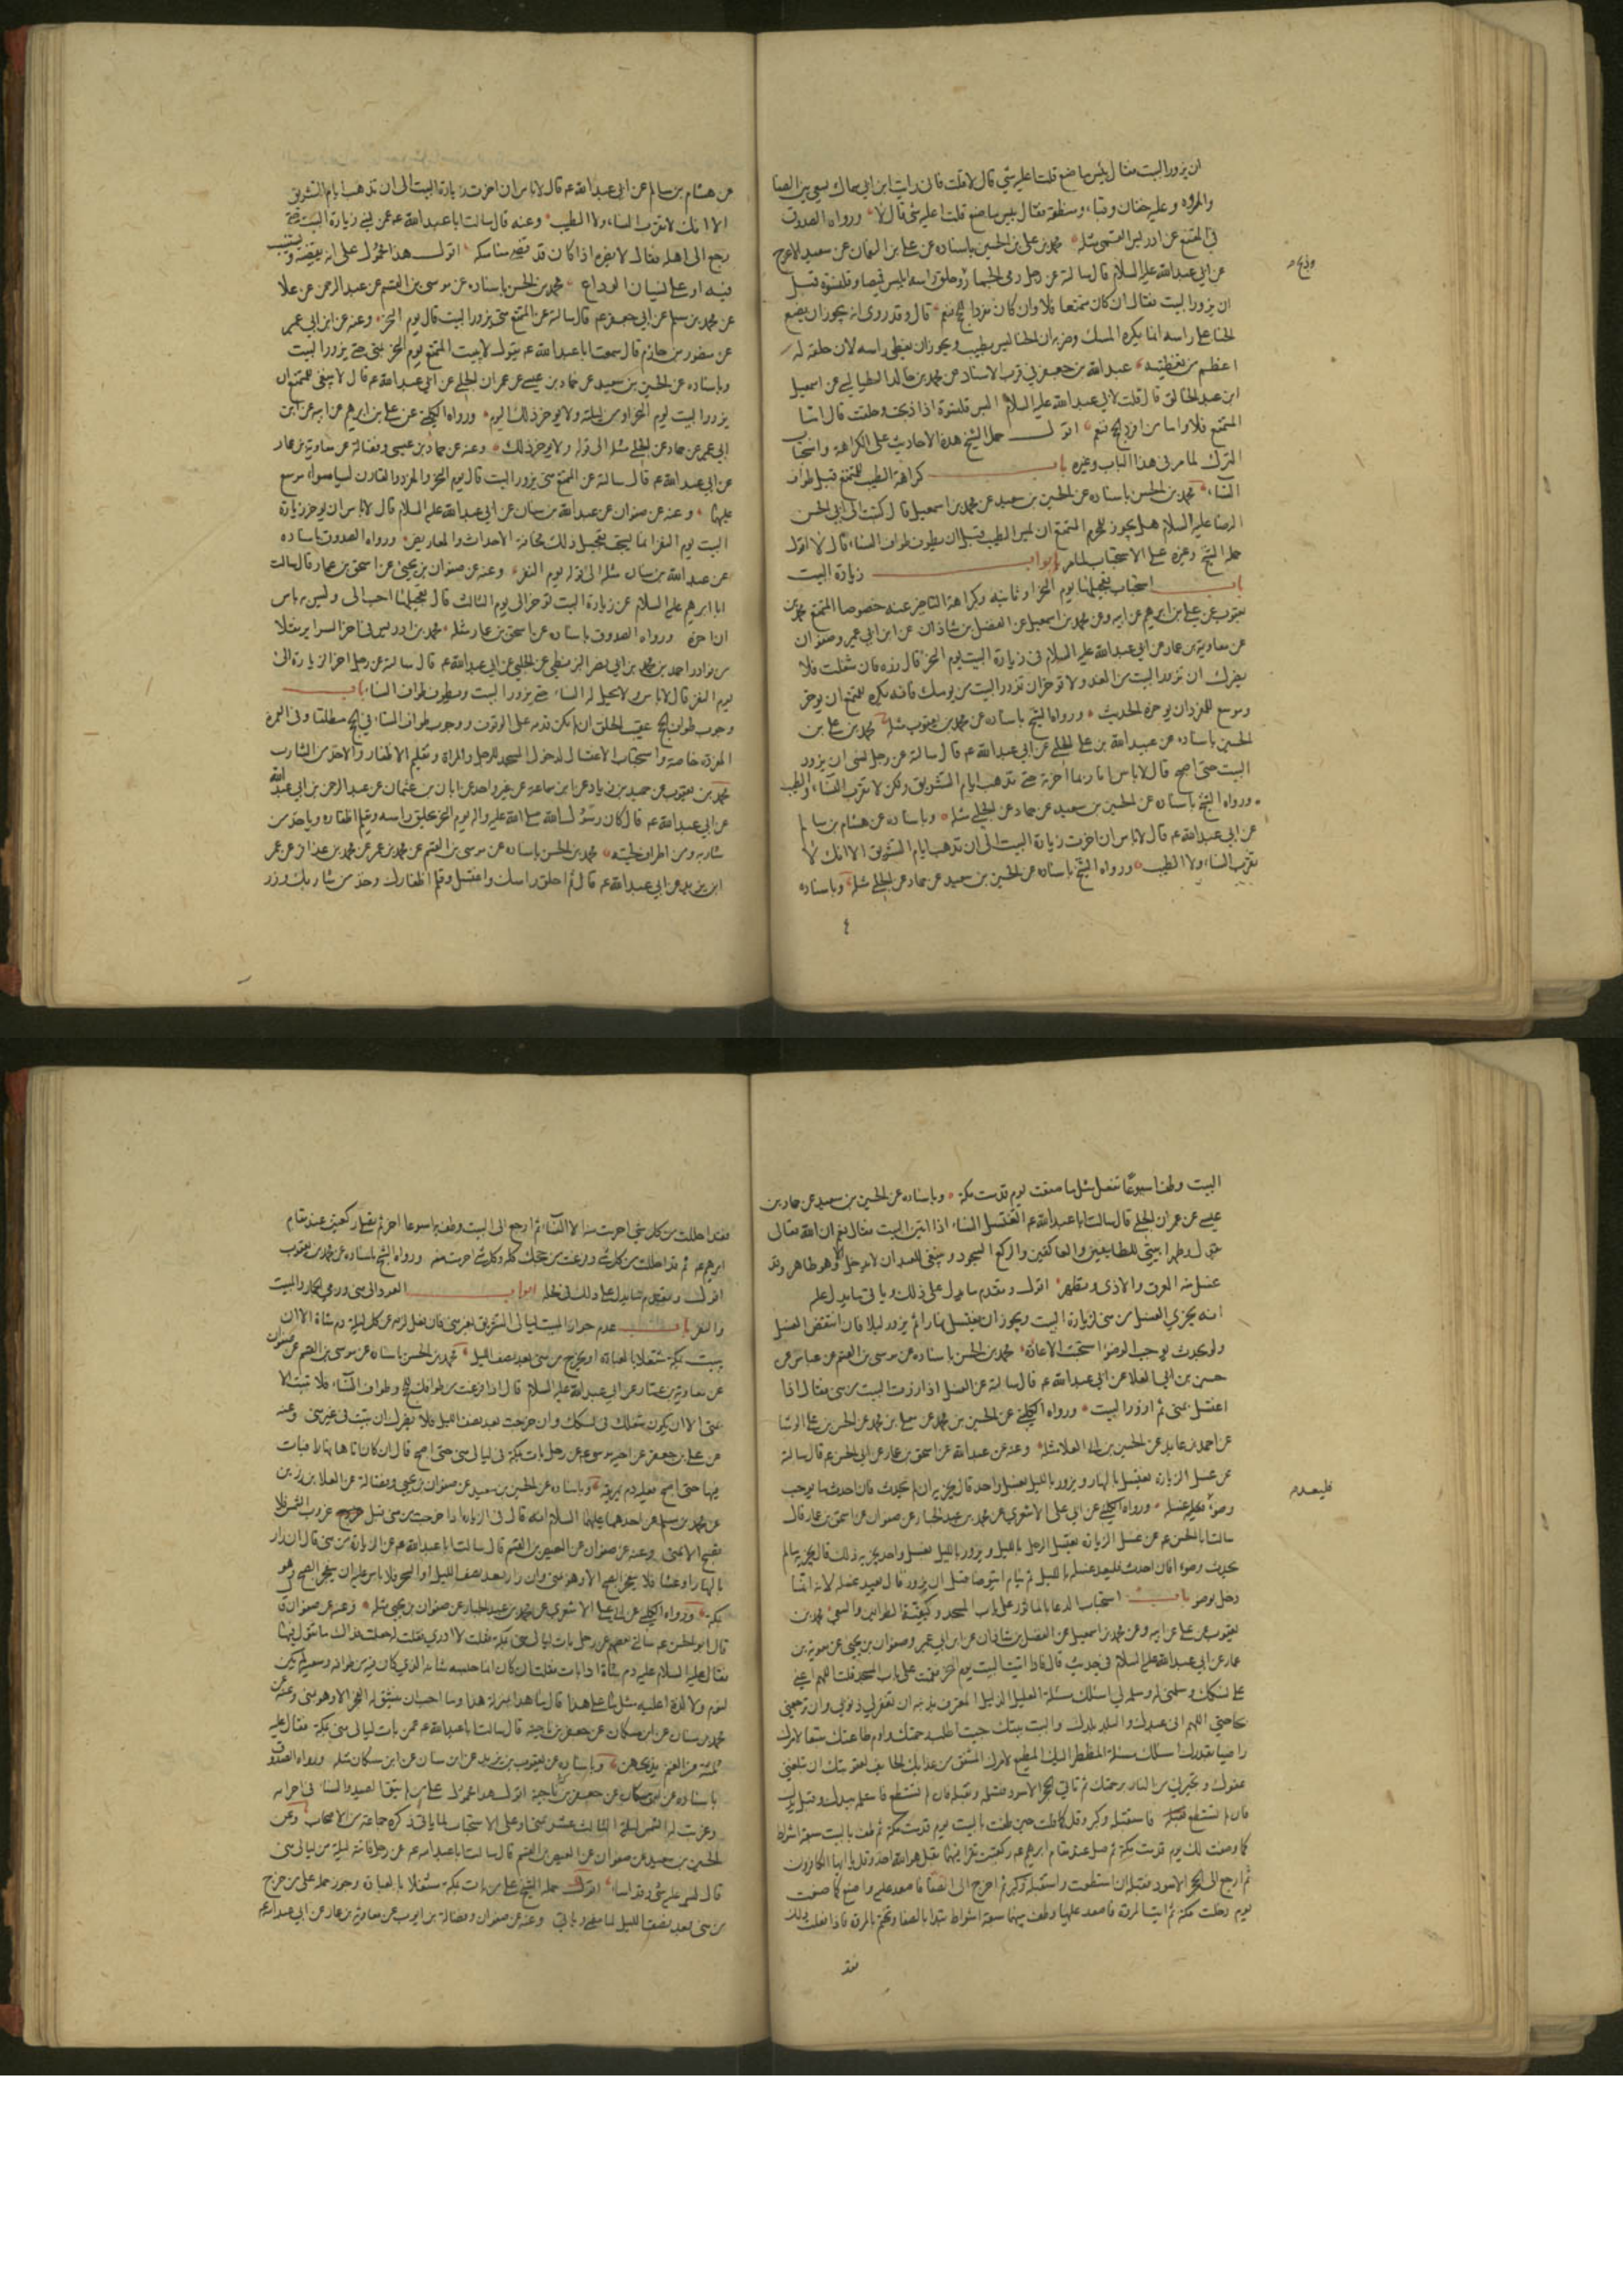 ان يزور البيت فقال بئس ما صنع قلت اعليه شي قال لا قلت فاني رايت ابن ابي سماك يسعى بين الصفا
والمروه وعليه خفان وقباء ومنطقه فقال بئس ما صنع قلت اعليه شي قال لا ورواه الصدوق
محمد بن علي بن الحسين باسناده عن علي بن النعمان عن سعيد الاعرج
وذبح م
عن ابي عبدالله عليه السلام قال سالته عن رجل رمى الجمار وحلق راسه ايلبس قميصا وقلنسوة قبل
ان يزور البيت فقال ان كان متمتعا فلا وان كان مفردا للحج نعم قال وقد روى انه يجوز ان يضع
الحنا على راسه انما يكره المسك وضربه ان الحنا ليس بطيب ويجوز ان يغطي راسه لان حلقه له
اعظم من تغطيته عبدالله بن جعفر في قرب الاسناد عن محمد بن خالد الطيالسي عن اسمعيل
ابن عبد الخالق قال قلت لابي عبدالله عليه السلام البس قلنسوة اذا ذبحت وحلقت قال اما
المتمتع فلا واما من افرد الحج نعم اقول حمل الشيخ هذه الاحاديث على الكراهة واستحباب
الترك لما مر في هذا الباب وغيره باب كراهة الطيب للمتمتع قبل طواف
النساء محمد بن الحسن باسناده عن الحسين بن سعيد عن محمد بن اسمعيل قال كتبت الى ابي الحسن
الرضا عليه السلام هل يجوز للمحرم المتمتع ان يمس الطيب قبل ان يطوف طواف النساء قال لا اقول
حمله الشيخ وغيره على الاستحباب لما مر ابواب زيارة البيت
باب استحباب تعجيلها يوم النحر او ثانيه وكراهة التاخير عنه خصوصا المتمتع محمد بن
يعقوب عن علي بن ابراهيم عن ابيه وعن محمد بن اسمعيل عن الفضل بن شاذان عن ابن ابي عمير وصفوان
عن معاوية بن عمار عن ابي عبدالله عليه السلام في زيارة البيت يوم النحر قال زره فان شغلت فلا
يضرك ان تزور البيت من الغد ولا تؤخر ان تزور البيت من يومك فانه يكره للمتمتع ان يوخر
وموسع للمفرد ان يوخره الحديث ورواه الشيخ باسناده عن محمد بن يعقوب مثله محمد بن علي بن
الحسين باسناده عن عبيدالله بن علي الحلبي عن ابي عبدالله ع قال سالته عن رجل نسى ان يزور
البيت حتى اصبح قال لا باس انا ربما اخرته حتى تذهب ايام التشريق ولكن لا تقرب النساء والطيب
ورواه الشيخ باسناده عن الحسين بن سعيد عن حماد عن الحلبي مثله وباسناده عن هشام بن سالم
عن ابي عبدالله ع قال لا باس ان اخرت زيارة البيت الى ان تذهب ايام التشريق الا انك لا
تقرب النساء ولا الطيب ورواه الشيخ باسناده عن الحسين بن سعيد عن حماد عن الحلبي مثله وباسناده
عن هشام بن سالم عن ابي عبدالله ع قال لا باس ان اخرت زيارة البيت الى ان تذهب ايام التشريق
الا انك لا تقرب النساء ولا الطيب وعنه قال سالت ابا عبدالله ع عمن نسى زيارة البيت حتى
رجع الى اهله فقال لا يضره اذا كان قد قضى مناسكه اقول هذا محمول على انه يقضيه ويستنيب
فيه او على نسيان الوداع محمد بن الحسن باسناده عن موسى بن القسم عن عبد الرحمن عن علا
عن محمد بن مسلم عن ابي جعفر ع قال سالته عن المتمتع متى يزور البيت قال يوم النحر وعنه عن ابن ابي عمير
عن منصور بن حازم قال سمعت ابا عبدالله ع يقول لا يبيت المتمتع يوم النحر بمنى حتى يزور البيت
وباسناده عن الحسين بن سعيد عن حماد بن عيسى عن عمران الحلبي عن ابي عبدالله ع قال لا ينبغي للمتمتع ان
يزور البيت يوم النحر او من ليلته ولا يوخر ذلك اليوم ورواه الكليني عن علي بن ابراهيم عن ابيه عن ابن
ابي عمير عن حماد عن الحلبي مثله الى قوله ولا يوخر ذلك وعنه عن حماد بن عيسى وفضالة عن معاوية بن عمار
عن ابي عبدالله ع قال سالته عن المتمتع متى يزور البيت قال يوم النحر والمفرد والقارن ليسا سواء موسع
عليهما وعنه عن صفوان عن عبدالله بن سنان عن ابي عبدالله عليه السلام قال لا باس ان يوخر زيارة
البيت يوم النفر انما يستحب تعجيل ذلك مخافة الاحداث والمعاريض ورواه الصدوق باسناده
عن عبدالله بن سنان مثله الى قوله يوم النفر وعنه عن صفوان بن يحيى عن اسحق بن عمار قال سالت
ابا ابرهيم عليه السلام عن زيارة البيت توخر الى يوم الثالث قال تعجيلها احب الى وليس به باس
ان اخره ورواه الصدوق باسناده عن اسحق بن عمار مثله محمد بن ادريس في اخر السراير نقلا
من نوادر احمد بن محمد بن ابي نصر البزنطي عن الحلبي عن ابي عبدالله ع قال سالته عن رجل اخر الزيارة الى
يوم النفر قال لا باس ولا يحل له النساء حتى يزور البيت ويطوف طواف النساء باب
وجوب طواف الحج عقيب الحلق ان لم يكن قدم على الوقوف ووجوب طواف النساء في الحج مطلقا وفي العمرة
المفردة خاصة واستحباب الاغتسال لدخول المسجد للرجل والمراة وتقليم الاظفار والاخذ من الشارب
محمد بن يعقوب عن حميد بن زياد عن ابن سماعة عن غير واحد عن ابان بن عثمان عن عبد الرحمن بن ابي عبد الله
عن ابي عبدالله ع قال كان رسول الله صلى الله عليه واله يوم النحر يحلق راسه ويقلم اظفاره وياخذ من
شاربه ومن اطراف لحيته محمد بن الحسن باسناده عن موسى بن القسم عن محمد بن عمر عن محمد بن عذافر عن عمر
ابن يزيد عن ابي عبدالله ع قال ثم احلق راسك واغتسل وقلم اظفارك وخذ من شاربك وزر
البيت وطف اسبوعا تفعل مثل ما صنعت يوم قدمت مكة وباسناده عن الحسين بن سعيد عن حماد بن
عيسى عن عمران الحلبي قال سالت ابا عبدالله ع اتغتسل النساء اذا اتين البيت فقال نعم ان الله تعالى
يقول وطهرا بيتي للطايفين والعاكفين والركع السجود وينبغي للعبد ان لا يدخل الا وهو طاهر وقد
غسل عنه العرق والاذى وتطهر اقول وتقدم ما يدل على ذلك وياتي ما يدل عليه
انه يجزي الغسل من منى لزيارة البيت ويجوز ان يغتسل نهارا ثم يزور ليلا فان انتقض الغسل
ولو بحدث يوجب الوضوء استحبت الاعادة محمد بن الحسن باسناده عن موسى بن القسم عن عباس عن
حسين بن ابي العلا عن ابي عبدالله ع قال سالته عن الغسل اذا زرت البيت من منى فقال انا
اغتسل بمنى ثم ازور البيت ورواه الكليني عن الحسين بن محمد عن معلى بن محمد عن الحسن بن علي الوشا
عن احمد بن عايذ عن الحسين بن ابي العلا مثله وعنه عن عبدالله عن اسحق بن عمار عن ابي الحسن ع قال سالته
عن غسل الزيارة يغتسل بالنهار ويزور بالليل بغسل واحد قال يجزيه ان لم يحدث فان احدث ما يوجب
فليعد م
وضوء فليعد غسله ورواه الكليني عن ابي علي الاشعري عن محمد بن عبد الجبار عن صفوان عن اسحق بن عمار قال
سالت ابا الحسن ع عن غسل الزيارة يغتسل الرجل بالليل ويزور بالليل بغسل واحد يجزيه ذلك قال يجزيه ما لم
يحدث وضوء فان احدث فليعد غسله بالليل
دخل بوضوء باب استحباب الدعا بالماثور على باب المسجد وكيفية الطوافين والسعي محمد بن
يعقوب عن علي عن ابيه وعن محمد بن اسمعيل عن الفضل بن شاذان عن ابن ابي عمير وصفوان بن يحيى عن معوية بن
عمار عن ابي عبدالله عليه السلام في حديث قال فاذا اتيت البيت يوم النحر فقمت على باب المسجد قلت اللهم اعني
على نسكك وسلمني له وسلمه لي اسئلك مسئلة العليل الذليل المعترف بذنبه ان تغفر لي ذنوبي وان ترجعني
بحاجتي اللهم اني عبدك والبلد بلدك والبيت بيتك جيت اطلب رحمتك واؤم طاعتك متبعا لامرك
راضيا بقدرك اسئلك مسئلة المضطر اليك المطيع لامرك المشفق من عذابك الخايف لعقوبتك ان تبلغني
عفوك وتجيرني من النار برحمتك ثم تاتي الحجر الاسود فتستلمه وتقبله فان لم تستطع فاستلمه بيدك وقبل يدك
فان لم تستطع فاستقبله وكبر وقل كما قلت حين طفت بالبيت يوم قدمت مكة ثم طف بالبيت سبعة اشواط
كما وصفت لك يوم قدمت مكة ثم صل عند مقام ابرهيم ع ركعتين تقرا فيهما بقل هو الله احد وقل يا ايها الكافرون
ثم ارجع الى الحجر الاسود فقبله ان استطعت واستقبله وكبر ثم اخرج الى الصفا فاصعد عليه واصنع كما صنعت
يوم دخلت مكة ثم ايت المروة فاصعد عليها وطف بينهما سبعة اشواط تبدا بالصفا وتختم بالمروة فاذا فعلت ذلك
فقد
فقد احللت من كل شي احرمت منه الا النساء ثم ارجع الى البيت وطف به اسبوعا اخر ثم تصلي ركعتين عند مقام
ابرهيم ع ثم قد احللت من كل شي وفرغت من حجك كله وكل شي احرمت منه ورواه الشيخ باسناده عن محمد بن يعقوب
اقول وتقدم ما يدل على ذلك ابواب العود الى منى ورمي الجمار والمبيت
والنفر باب عدم جواز المبيت ليالي التشريق بغير منى فان فعل لزمه عن كل ليلة دم شاة الا ان
يبيت بمكة مشتغلا بالعبادة او يخرج من منى بعد نصف الليل محمد بن الحسن باسناده عن موسى بن القسم عن صفوان
عن معاوية بن عمار عن ابي عبدالله عليه السلام قال اذا فرغت من طوافك للحج وطواف النساء فلا تبيت الا
بمنى الا ان يكون شغلك في نسكك وان خرجت بعد نصف الليل فلا يضرك ان تبيت في غير منى وعنه
عن علي بن جعفر عن اخيه موسى ع عن رجل بات بمكة في ليالي منى حتى اصبح قال ان كان اتاها نهارا فبات
فيها حتى اصبح فعليه دم يهريقه وباسناده عن الحسين بن سعيد عن صفوان بن يحيى وفضالة عن العلا بن رزين
عن محمد بن مسلم عن احدهما عليهما السلام انه قال في الزيارة اذا خرجت من منى قبل غروب الشمس فلا
تصبح الا بمنى وعنه عن صفوان عن العيص بن القسم قال سالت ابا عبدالله ع عن الزيارة من منى قال ان زار
بالنهار او عشا فلا ينفجر الصبح الا وهو بمنى وان زار بعد نصف الليل او السحر فلا باس عليه ان ينفجر الصبح وهو
بمكة ورواه الكليني عن ابي علي الاشعري عن محمد بن عبد الجبار عن صفوان بن يحيى مثله وعنه عن صفوان
قال ابو الحسن ع سالني بعضهم عن رجل بات ليالي منى بمكة فقلت لا ادري فقلت له جعلت فداك ما تقول فيها
فقال عليه السلام عليه دم شاة اذا بات فقلت ان كان انما حبسه شانه الذي كان فيه من طوافه وسعيه لم يكن
لنوم ولا لذة اعليه مثل ما على هذا قال ما هذا بمنزلة هذا وما احب ان ينشق له الفجر الا وهو بمنى وعنه عن
محمد بن سنان عن ابن مسكان عن جعفر بن ناجية قال سالت ابا عبدالله ع عمن بات ليالي منى بمكة فقال عليه
ثلثة من الغنم يذبحهن وباسناده عن يعقوب بن يزيد عن ابن سنان عن ابن مسكان مثله ورواه الصدوق
باسناده عن ابن مسكان عن جعفر بن ناجية اقول هذا محمول على من لم يتق الصيد والنساء في احرامه
وغربت له الشمس ليلة الثالث عشر بمنى او على الاستحباب لما ياتي ذكره جماعة من الاصحاب وعن
الحسين بن سعيد عن صفوان عن العيص بن القسم قال سالت ابا عبدالله ع عن رجل فاتته ليلة من ليالي منى
قال ليس عليه شي وقد اساء اقول حمله الشيخ على من بات بمكة مشتغلا بالعبادة وجوز حمله على من خرج
من منى بعد نصف الليل لما مضى وياتي وعنه عن صفوان وفضالة بن ايوب عن معاوية بن عمار عن ابي عبدالله ع